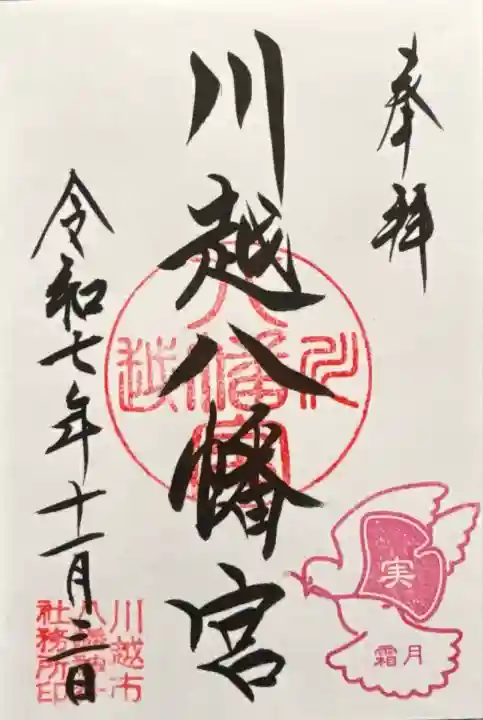 奉拝
川越八幡宮
令和七年十一月三日
川越
八幡宮
川越市
社務所印
実
霜月